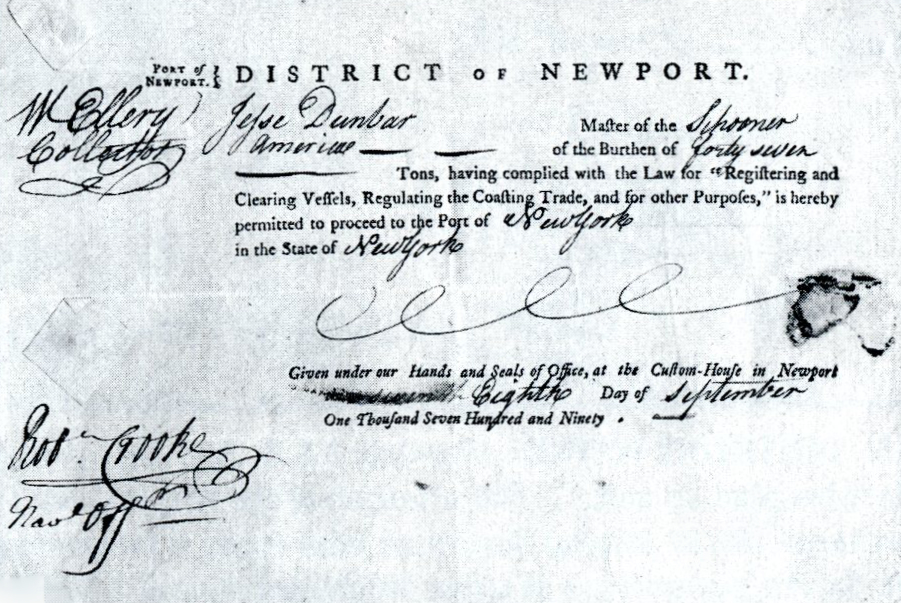 PORT of NEWPORT. } DISTRICT OF NEWPORT.
W Ellery
Collector
Jesse Dunbar Maſter of the Schooner
America of the Burthen of forty seven
Tons, having complied with the Law for "Regiſtering and
Clearing Veſſels, Regulating the Coaſting Trade, and for other Purpoſes," is hereby
permitted to proceed to the Port of New York
in the State of New York
Given under our Hands and Seals of Office, at the Cuſtom-Houſe in Newport
Eighth Day of September
One Thouſand Seven Hundred and Ninety .
Robt Crooke
Navl Off